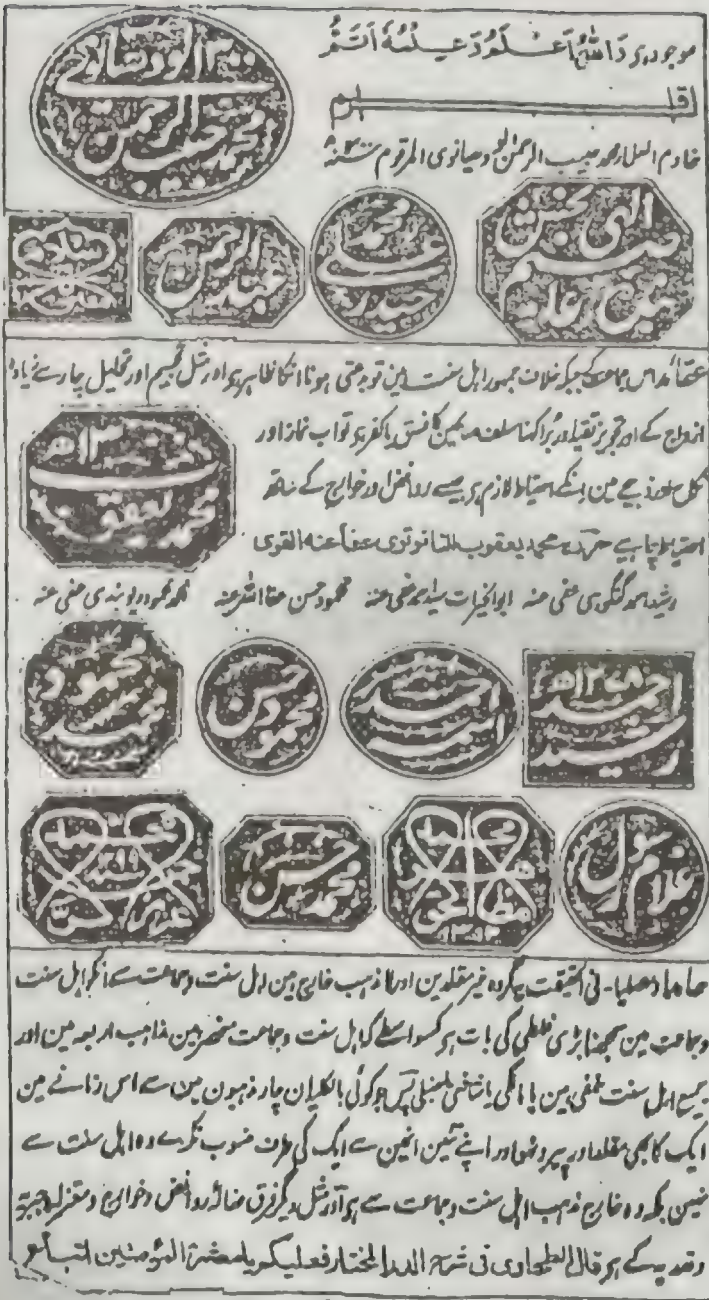 موجود ہیں واللہ اعلم وعلمہ اتم
الراقم
خادم العلماء محمد حبیب الرحمٰن لودھیانوی المرقوم
محمد حبیب الرحمن لودھیانوی
الہی بخش
محمد علی حیدر
عبد الرحمن
عقائد اس جماعت کے جبکہ خلاف جمہور اہل سنت ہین تو بدعتی ہونا انکا ظاہر ہی اور مثل تجسیم اور تحلیل چار سے زیادہ
ازواج کے اور تجویز تقیہ اور برا کہنا سلف صالحین کا فسق یا کفر ہی تو اب نماز اور
نکاح اور ذبیحے مین انکے احتیاط لازم ہی جیسے روافض اور خوارج کے ساتھ
احتیاط چاہیے حررہ محمد یعقوب النانوتوی عفا عنہ القوی
محمد یعقوب
رشید احمد گنگوہی عفی عنہ ابو الخیرات سید احمد عفی عنہ محمود حسن عفا اللہ عنہ محمد محمود دیوبندی عفی عنہ
رشید احمد ۱۲۷۸ھ
سید احمد
محمود حسن
محمد محمود
غلام رسول
محمد مظہر الحق
محمد حسن
عزیز
حامدا ومصلیا - فی الحقیقت یہ گروہ غیر مقلدین اور لا مذہب خارج ہین اہل سنت وجماعت سے انکو اہل سنت
وجماعت مین سمجھنا بڑی غلطی کی بات ہی کسواسطے کہ اہل سنت وجماعت منحصر ہین مذاہب اربعہ مین اور
جمیع اہل سنت حنفی ہین یا مالکی یا شافعی یا حنبلی پس جو کوئی بالکل ان چار مذہبون مین سے اس زمانے مین
ایک کا بھی مقلد اور پیرو نہو اور اپنے تئین انمین سے ایک کی طرف منسوب نکرے وہ اہل سنت سے
نہین بلکہ وہ خارج مذہب اہل سنت وجماعت سے ہی اور مثل دیگر فرق ضالہ روافض وخوارج ومعتزلہ وجبریہ
وقدریہ کے ہی قال الطحاوی فی شرح الدر المختار فعلیکم یا معشر المؤمنین اتباع